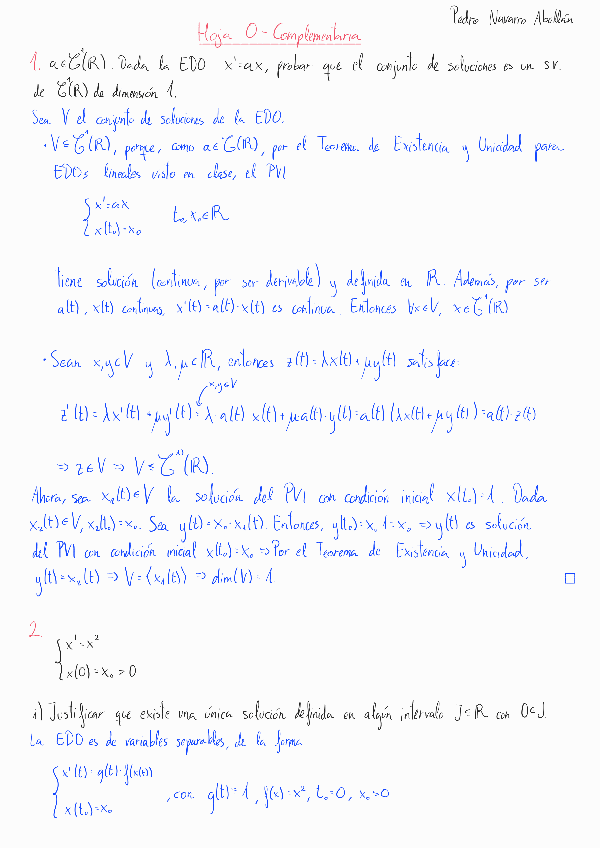 Pedro Navarro Abellán
Hoja 0 - Complementaria
1. a∈C¹(ℝ). Dada la EDO x'=ax, probar que el conjunto de soluciones es un s.v.
de C¹(ℝ) de dimensión 1.
Sea V el conjunto de soluciones de la EDO.
· V⊆C¹(ℝ), porque, como a∈C(ℝ), por el Teorema de Existencia y Unicidad para
EDOs lineales visto en clase, el PVI
{ x'=ax
x(t₀)=x₀ t₀,x₀∈ℝ
tiene solución (continua, por ser derivable) y definida en ℝ. Además, por ser
a(t), x(t) continuas, x'(t)=a(t)·x(t) es continua. Entonces ∀x∈V, x∈C¹(ℝ)
· Sean x,y∈V y λ,μ∈ℝ, entonces z(t)=λx(t)+μy(t) satisface:
x,y∈V
z'(t)=λx'(t)+μy'(t)=λ·a(t)·x(t)+μa(t)·y(t)=a(t)(λx(t)+μy(t))=a(t)·z(t)
⇒ z∈V ⇒ V≤C¹(ℝ).
Ahora, sea x₁(t)∈V la solución del PVI con condición inicial x(t₀)=1. Dada
x₂(t)∈V, x₂(t₀)=x₀. Sea y(t)=x₀·x₁(t). Entonces, y(t₀)=x₀·1=x₀ ⇒ y(t) es solución
del PVI con condición inicial x(t₀)=x₀ ⇒ Por el Teorema de Existencia y Unicidad,
y(t)=x₂(t) ⇒ V=⟨x₁(t)⟩ ⇒ dim(V)=1 □
2.
{ x'=x²
x(0)=x₀>0
i) Justificar que existe una única solución definida en algún intervalo J⊂ℝ con 0∈J.
La EDO es de variables separables, de la forma
{ x'(t)=g(t)·f(x(t))
x(t₀)=x₀ , con g(t)=1, f(x)=x², t₀=0, x₀>0